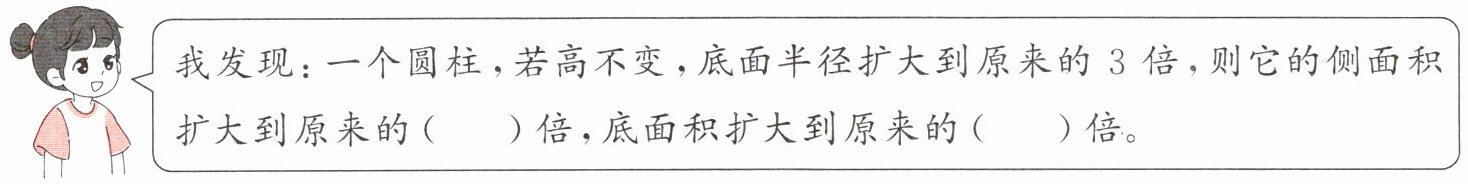 我发现：一个圆柱，若高不变，底面半径扩大到原来的 3 倍，则它的侧面积
扩大到原来的（　　）倍，底面积扩大到原来的（　　）倍。